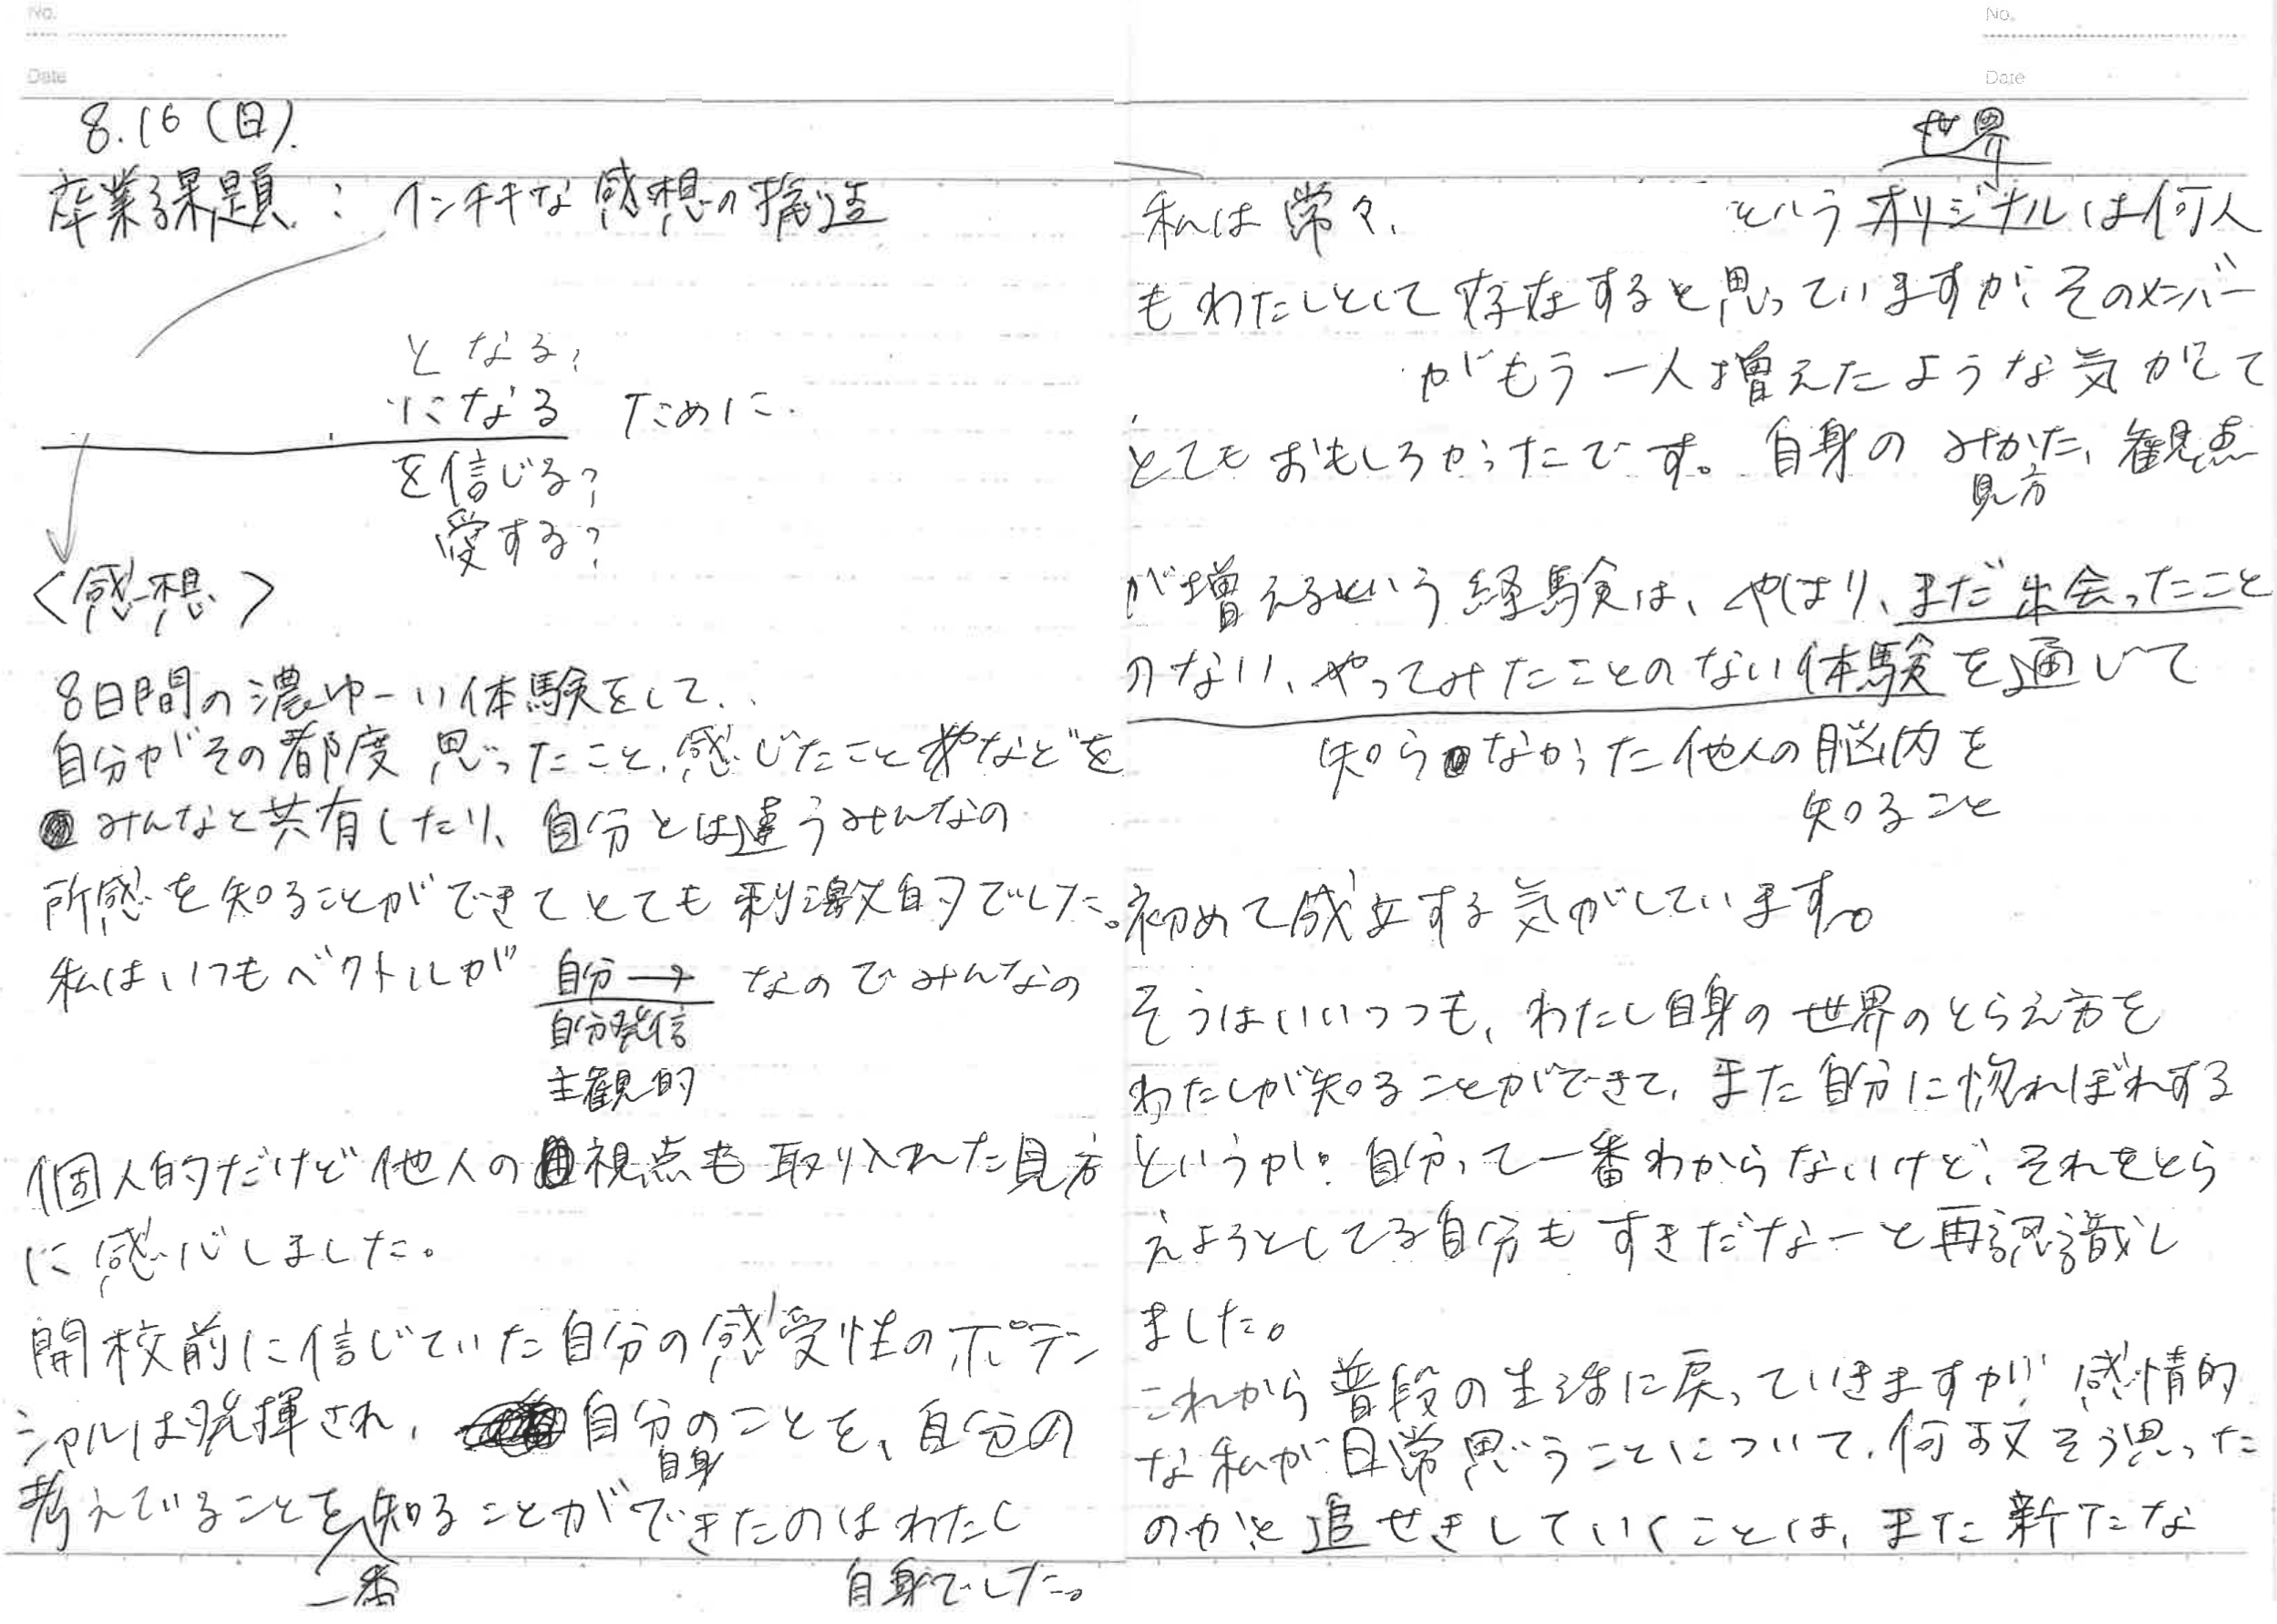 No.
Date
8.16(日).
卒業課題: インチキな感想の捏造
となる?
になる ために.
を信じる?
愛する?
<感想>
8日間の濃ゆーい体験をして..
自分がその都度思ったこと、感じたことなどを
みんなと共有したり、自分とは違うみんなの
所感を知ることができてとても刺激的でした。
私はいつもベクトルが 自分→ なのでみんなの
自分発信
主観的
個人的だけど他人の視点も取り入れた見方
に感心しました。
開校前に信じていた自分の感受性のポテン
シャルは発揮され、自分のことを、自分の
自身
考えていることを知ることができたのはわたし
一番 自身でした。
No.
Date
世界
私は常々、 というオリジナルは何人
もわたしとして存在すると思っていますが、そのメンバー
がもう一人増えたような気がして
とてもおもしろかったです。自身のみかた、観点
見方
が増えるという経験は、やはり、まだ出会ったこと
のない、やってみたことのない体験を通じて
知らなかった他人の脳内を
知ること
初めて成立する気がしています。
そうはいいつつも、わたし自身の世界のとらえ方を
わたしが知ることができて、また自分に惚れぼれする
というか。自分って一番わからないけど、それをとら
えようとしてる自分もすきだなーと再認識し
ました。
これから普段の生活に戻っていきますが、感情的
な私が日常思うことについて、何故そう思った
のかを追せきしていくことは、また新たな